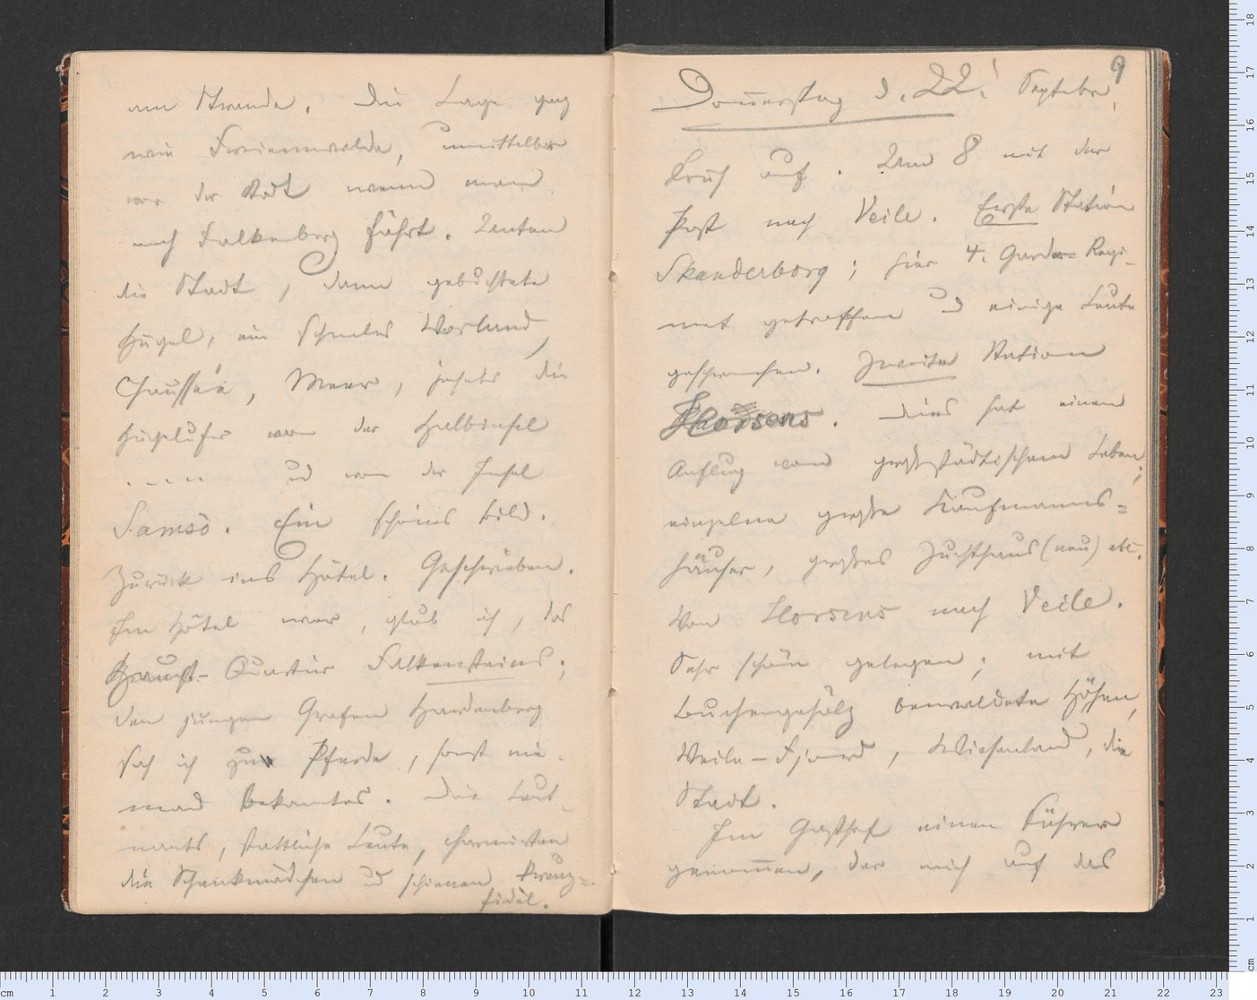 am Strande. Die Lage ganz
wie Freienwalde, unmittelbar
vor der Stadt wenn man
nach Falkenberg fährt. Unten
die Stadt, dann gebuchtete
Hügel, ein schmales Vorland,
Chaussée, Meer, jenseits die
Hügelufer von der Halbinsel
.... und von der Insel
Samsö. Ein schönes Bild.
Zurück ins Hôtel. Geschrieben.
Im Hôtel war, glaub ich, das
Haupt-Quartier Falkensteins;
den jungen Grafen Hardenberg
sah ich zu Pferde, sonst nie-
mand Bekanntes. Die Leut-
nants, stattliche Leute, charmirten
die Schenkmädchen und schienen kreuz=
fidel.
9
Donnerstag d. 22. Septebr.
Früh auf. Um 8 mit der
Post nach Veile. Erste Station
Skanderborg; hier 4. Garde-Regi-
ment getroffen und einige Leute
gesprochen. Zweite Station
Horsens. Dies hat einen
Anflug von großstädtischem Leben;
einzelne große Kaufmanns=
häuser, großes Zuchthaus (neu) etc.
Von Horsens nach Veile.
Sehr schön gelegen; mit
Buchengehölz bewaldete Höhen,
Veile-Fjord, Wiesenland, die
Stadt.
Im Gasthof einen Führer
genommen, der mich auf das